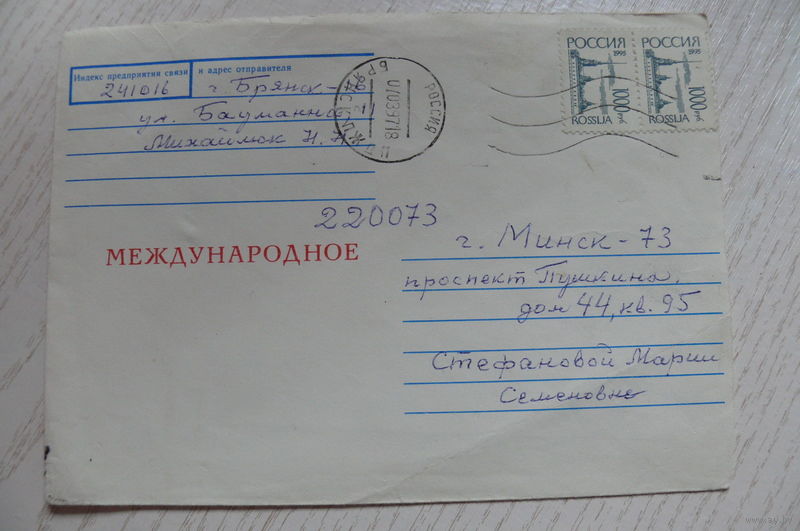 Индекс предприятия связи и адрес отправителя
241016 г. Брянск-16
ул. Баумана
Михаймюк Н.
РОССИЯ
БРЯНСК
07039718
РОССИЯ 1995
1000 руб
ROSSIJA
РОССИЯ 1995
1000 руб
ROSSIJA
220073
МЕЖДУНАРОДНОЕ
г. Минск-73
проспект Пушкина,
дом 44, кв. 95
Стефановой Марии
Семеновне